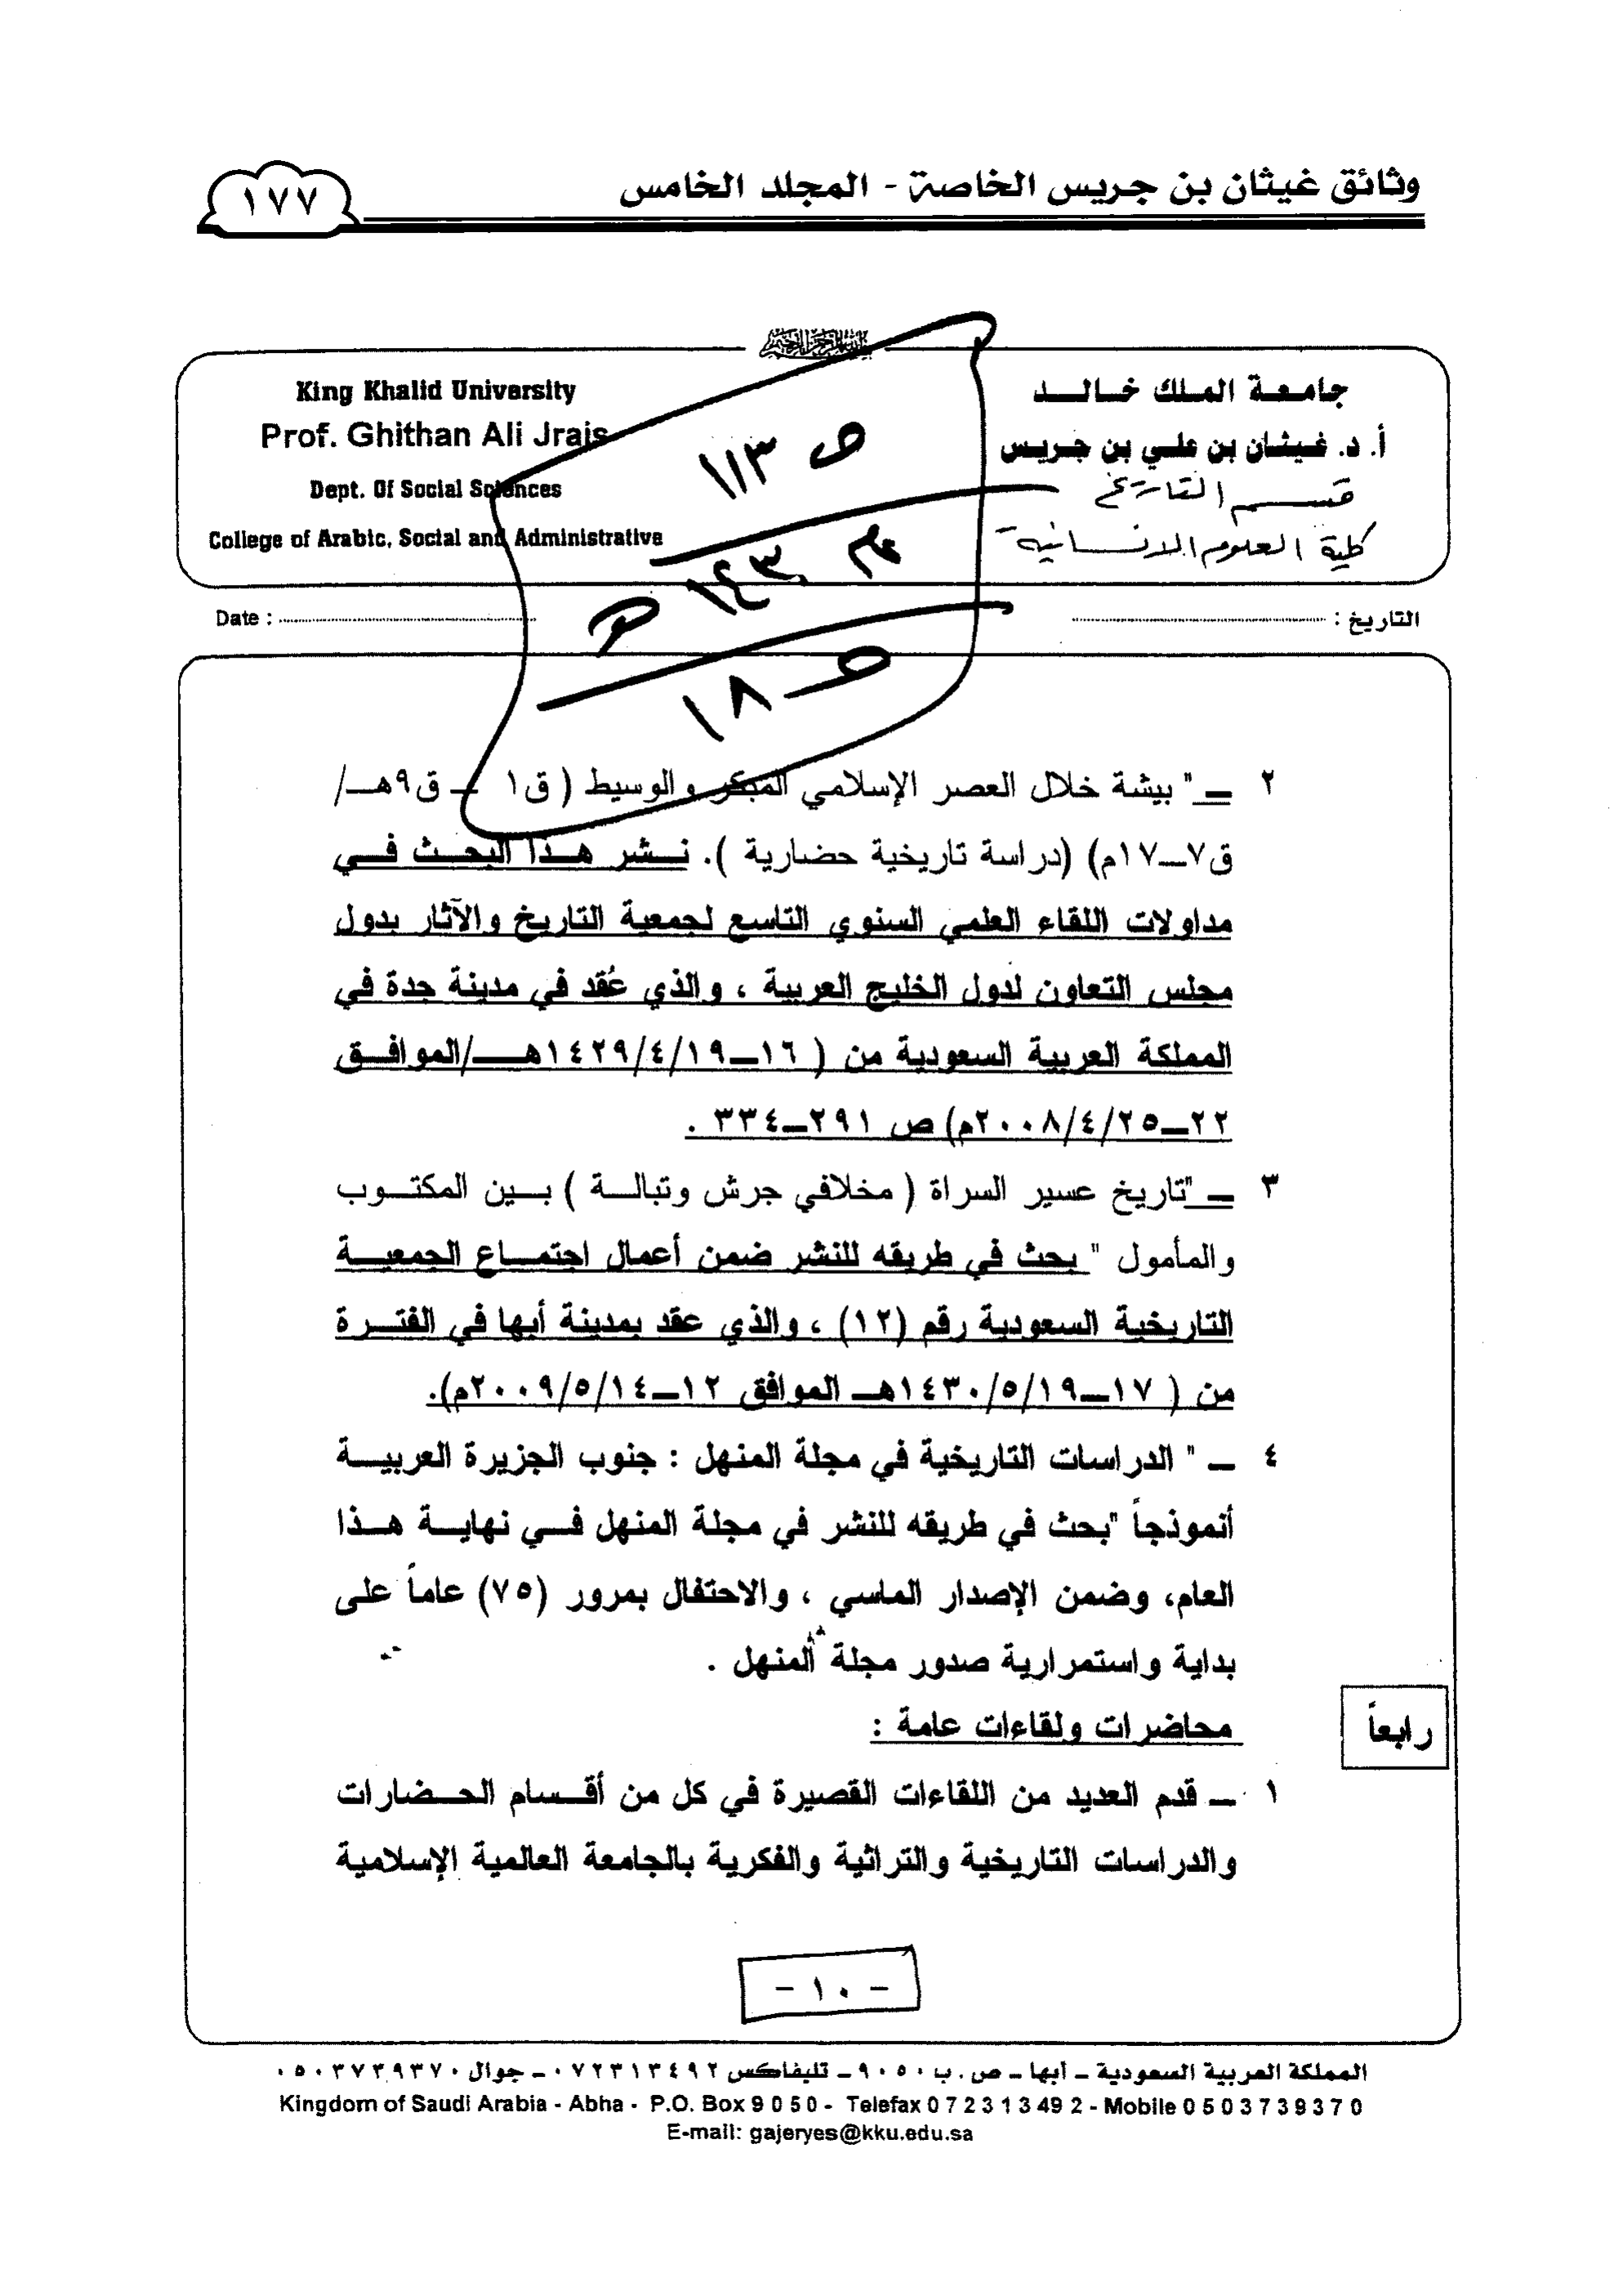 وثائق غيثان بن جريس الخاصة - المجلد الخامس
١٧٧
جامعة الملك خالد
أ. د. غيثان بن علي بن جريس
قسم التاريخ
كلية العلوم الانسانية
King Khalid University
Prof. Ghithan Ali Jrais
Dept. Of Social Sciences
College of Arabic, Social and Administrative
ص ١١٣
عام ١٤٣٠هـ
ص ١٨
التاريخ :
Date :
٢ ـ " بيشة خلال العصر الإسلامي المبكر والوسيط ( ق١ ـ ق٩هـ/
ق٧ـ١٧م) (دراسة تاريخية حضارية ). نشر هذا البحث في
مداولات اللقاء العلمي السنوي التاسع لجمعية التاريخ والآثار بدول
مجلس التعاون لدول الخليج العربية ، والذي عُقد في مدينة جدة في
المملكة العربية السعودية من ( ١٦ـ١٤٢٩/٤/١٩هـ/الموافق
٢٢ـ٢٠٠٨/٤/٢٥م) ص ٢٩١ـ٣٣٤ .
٣ ـ "تاريخ عسير السراة ( مخلافي جرش وتبالة ) بين المكتوب
والمأمول " بحث في طريقه للنشر ضمن أعمال اجتماع الجمعية
التاريخية السعودية رقم (١٢) ، والذي عقد بمدينة أبها في الفترة
من ( ١٧ـ١٤٣٠/٥/١٩هـ الموافق ١٢ـ٢٠٠٩/٥/١٤م).
٤ ـ " الدراسات التاريخية في مجلة المنهل : جنوب الجزيرة العربية
أنموذجاً "بحث في طريقه للنشر في مجلة المنهل في نهاية هذا
العام، وضمن الإصدار الماسي ، والاحتفال بمرور (٧٥) عاماً على
بداية واستمرارية صدور مجلة المنهل .
رابعاً
محاضرات ولقاءات عامة :
١ ـ قدم العديد من اللقاءات القصيرة في كل من أقسام الحضارات
والدراسات التاريخية والتراثية والفكرية بالجامعة العالمية الإسلامية
- ١٠ -
المملكة العربية السعودية ـ أبها ـ ص . ب ٩٠٥٠ ـ تليفاكس ٠٧٢٣١٣٤٩٢ ـ جوال ٠٥٠٣٧٣٩٣٧٠
Kingdom of Saudi Arabia - Abha - P.O. Box 9 0 5 0 - Telefax 0 7 2 3 1 3 49 2 - Mobile 0 5 0 3 7 3 9 3 7 0
E-mail: gajeryes@kku.edu.sa